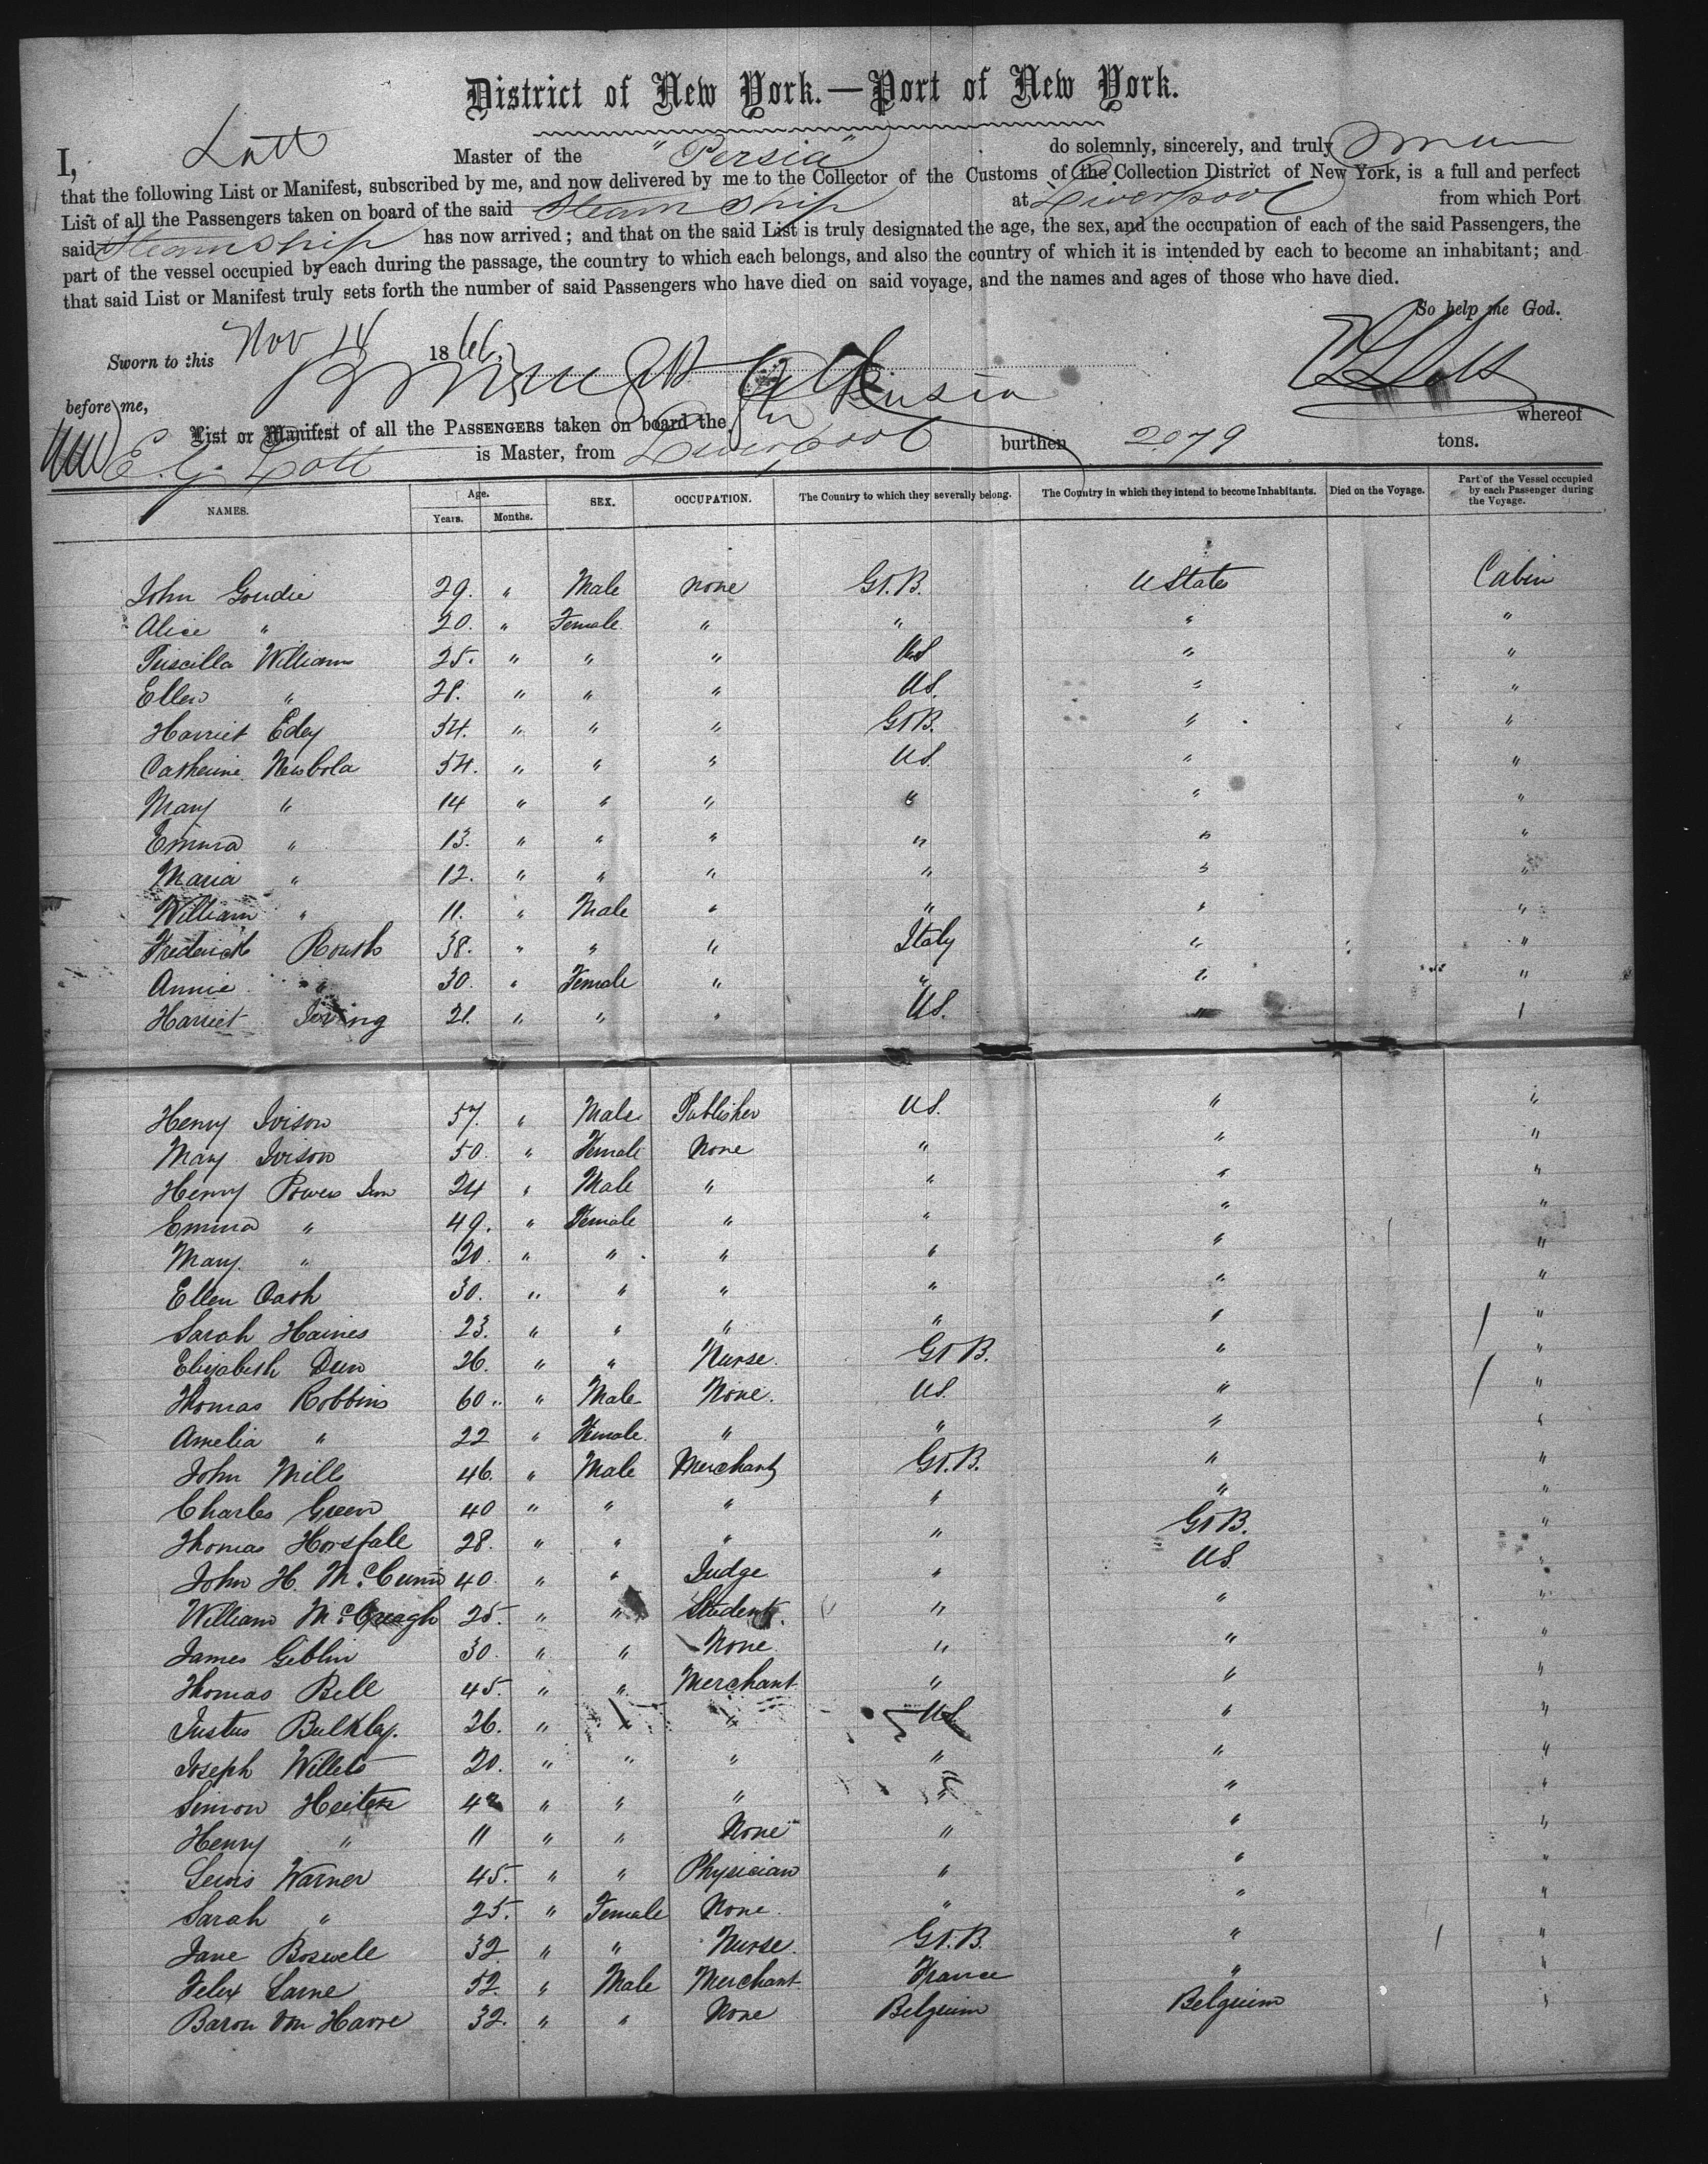 District of New York.—Port of New York.
I, Lott Master of the "Persia" do solemnly, sincerely, and truly
that the following List or Manifest, subscribed by me, and now delivered by me to the Collector of the Customs of the Collection District of New York, is a full and perfect
List of all the Passengers taken on board of the said Steam Ship at Liverpool from which Port
said Steamship has now arrived; and that on the said List is truly designated the age, the sex, and the occupation of each of the said Passengers, the
part of the vessel occupied by each during the passage, the country to which each belongs, and also the country of which it is intended by each to become an inhabitant; and
that said List or Manifest truly sets forth the number of said Passengers who have died on said voyage, and the names and ages of those who have died.
So help me God.
Sworn to this Nov 14 1866
before me,
List or Manifest of all the PASSENGERS taken on board the Persia whereof
E. G. Lott is Master, from Liverpool burthen 2079 tons.
NAMES. Age. Years. Months. SEX. OCCUPATION. The Country to which they severally belong. The Country in which they intend to become Inhabitants. Died on the Voyage. Part of the Vessel occupied by each Passenger during the Voyage.
John Goudie 29. " Male none Gt.B. U States Cabin
Alice " 20. " Female " " " "
Priscilla Williams 25. " " " US " "
Ellen " 28. " " " US. " "
Harriet Edey 34. " " " Gt B. " "
Catherine Newbola 54. " " " US " "
Mary " 14 " " " " " "
Emma " 13. " " " " " "
Maria " 12. " " " " " "
William " 11. " Male " " " "
Frederick 38. " " " Italy " "
Annie " 30. " Female " " " "
Harriet Irving 21. " " " US. "
Henry Ivison 57. " Male Publisher US. " "
Mary Ivison 50. " Female None " " "
Henry 24 " Male " " " "
Emma " 49. " Female " " " "
Mary " 20. " " " " " "
Ellen Cash 30. " " " " " "
Sarah Haines 23. " " " " " "
Elizabeth Dun 26. " " Nurse. Gt B. " "
Thomas Robbins 60. " Male None. US. " "
Amelia " 22 " Female " " " "
John Mills 46. " Male Merchant Gt.B. " "
Charles Green 40 " " " " " "
Thomas Horsfall 28. " " " " Gt B. "
John H. McCunn 40. " " Judge " US "
William McCreagh 25. " " Student. " " "
James Giblin 30. " " None. " " "
Thomas Bell 45. " " Merchant " " "
Justus Bulkley. 26. " " " US. " "
Joseph Willets 20. " " " " " "
Simon 42 " " " " " "
Henry " 11 " " None " " "
Lewis Warner 45. " " Physician " " "
Sarah " 25. " Female None. " " "
Jane Boswell 32 " " Nurse. Gt.B. " "
Felix Larne 52. " Male Merchant France " "
Baron Von Havre 32. " " None Belgium Belgium "